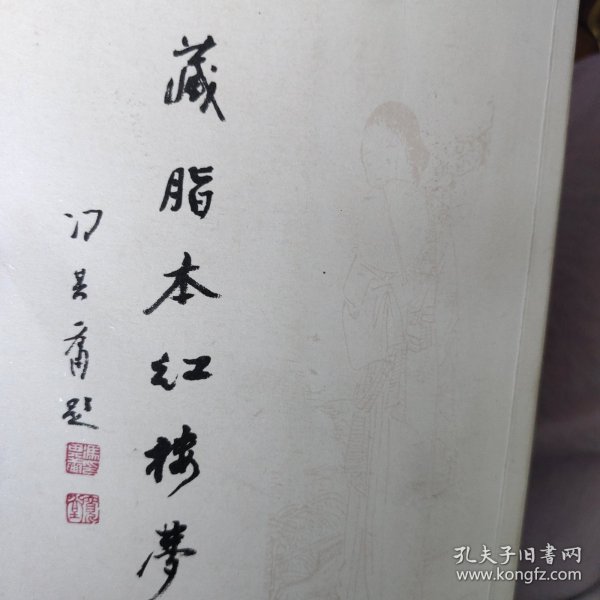 藏脂本红楼梦
冯其庸题
孔夫子旧书网
www.kongfz.com